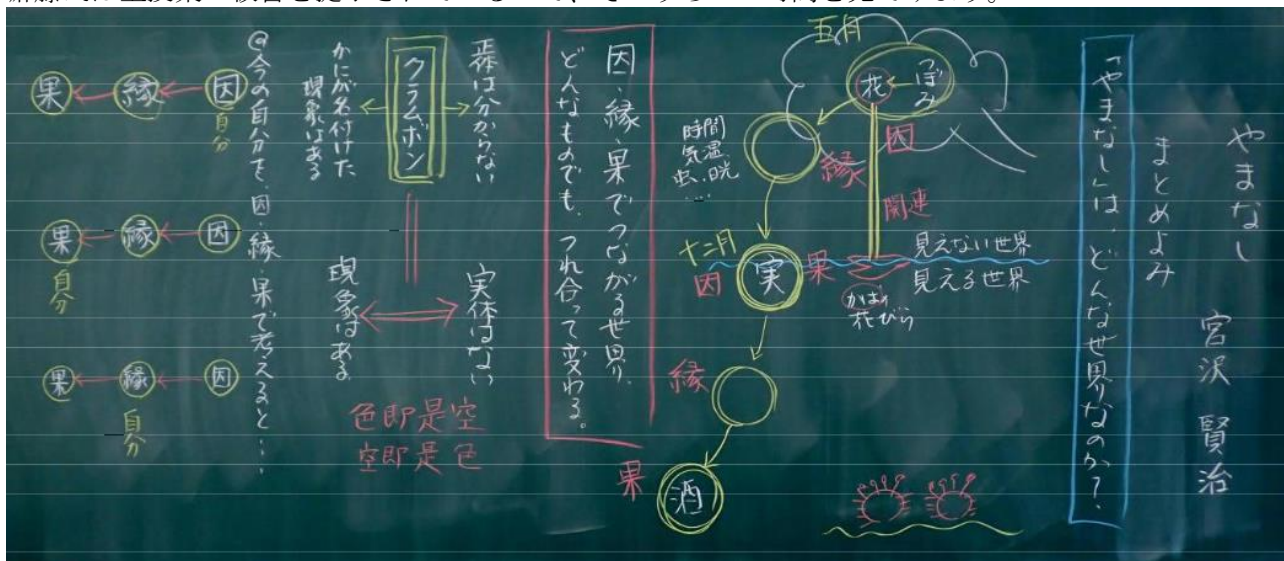 やまなし
宮沢 賢治
まとめよみ
「やまなし」は、どんな世界なのか?
五月
つぼみ
花
因
縁
関連
時間
気温
虫、日光
…
見えない世界
見える世界
かばの
花びら
十二月
実
果
因
縁
果
酒
因・縁・果でつながる世界。
どんなものでも、つれ合って変わる。
正体は分からない
クラムボン
かにが名付けた
現象はある
実体はない
現象はある
色即是空
空即是色
@今の自分を、因・縁・果で考えると・・・
因
自分
縁
果
因
縁
果
自分
因
縁
自分
果